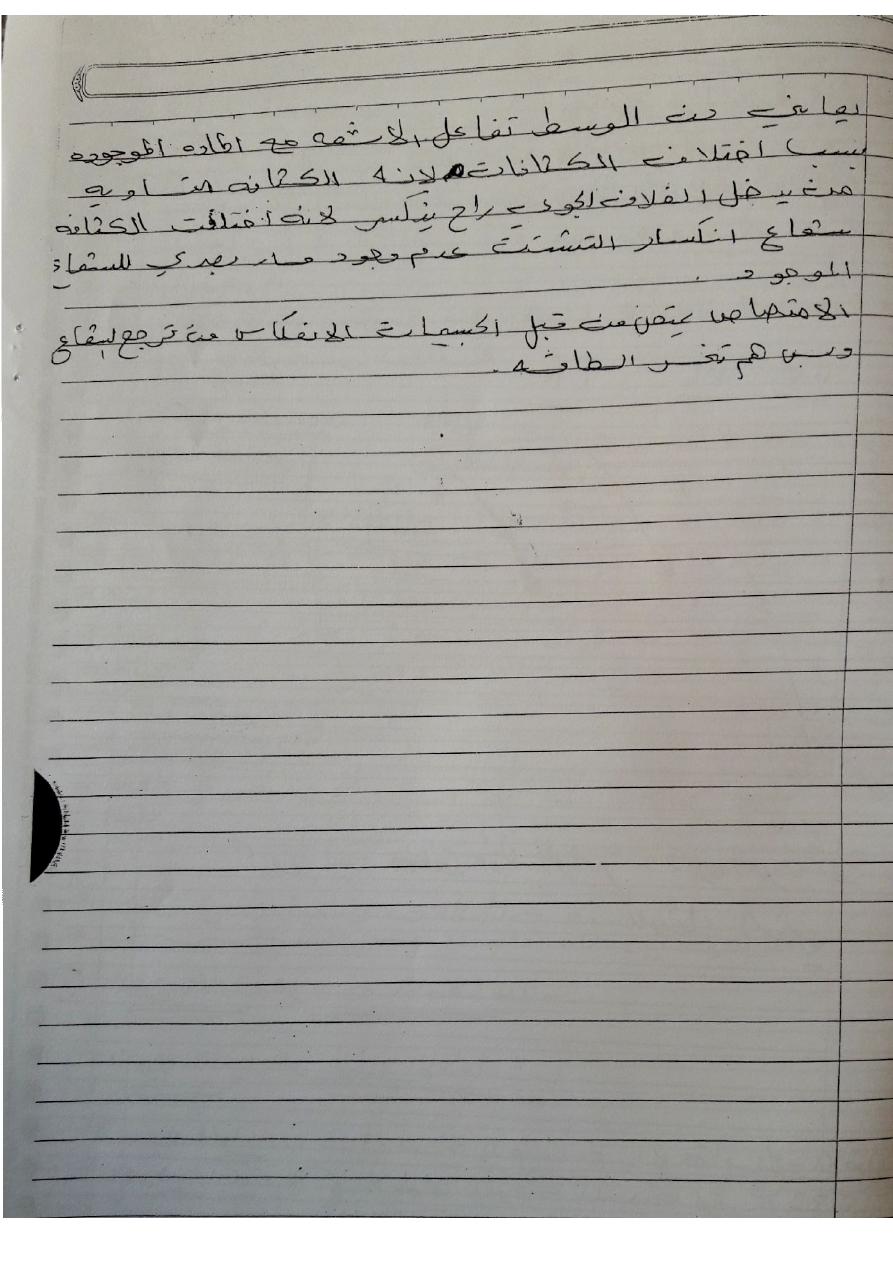 يعاني من الوسط تفاعل الاشعه مع الماده الموجوده
بسبب اختلاف الكثافات لانه الكثافه متساويه
من يدخل الغلاف الجوي راح ينكسر لانه اختلفت الكثافه
شعاع انكسار التشتت عدم وجود مسار بصري للشعاع
الموجود .
الامتصاص يمتص من قبل الجسيمات الانعكاس من ترجع
وبس هم تخسر الطاقه .